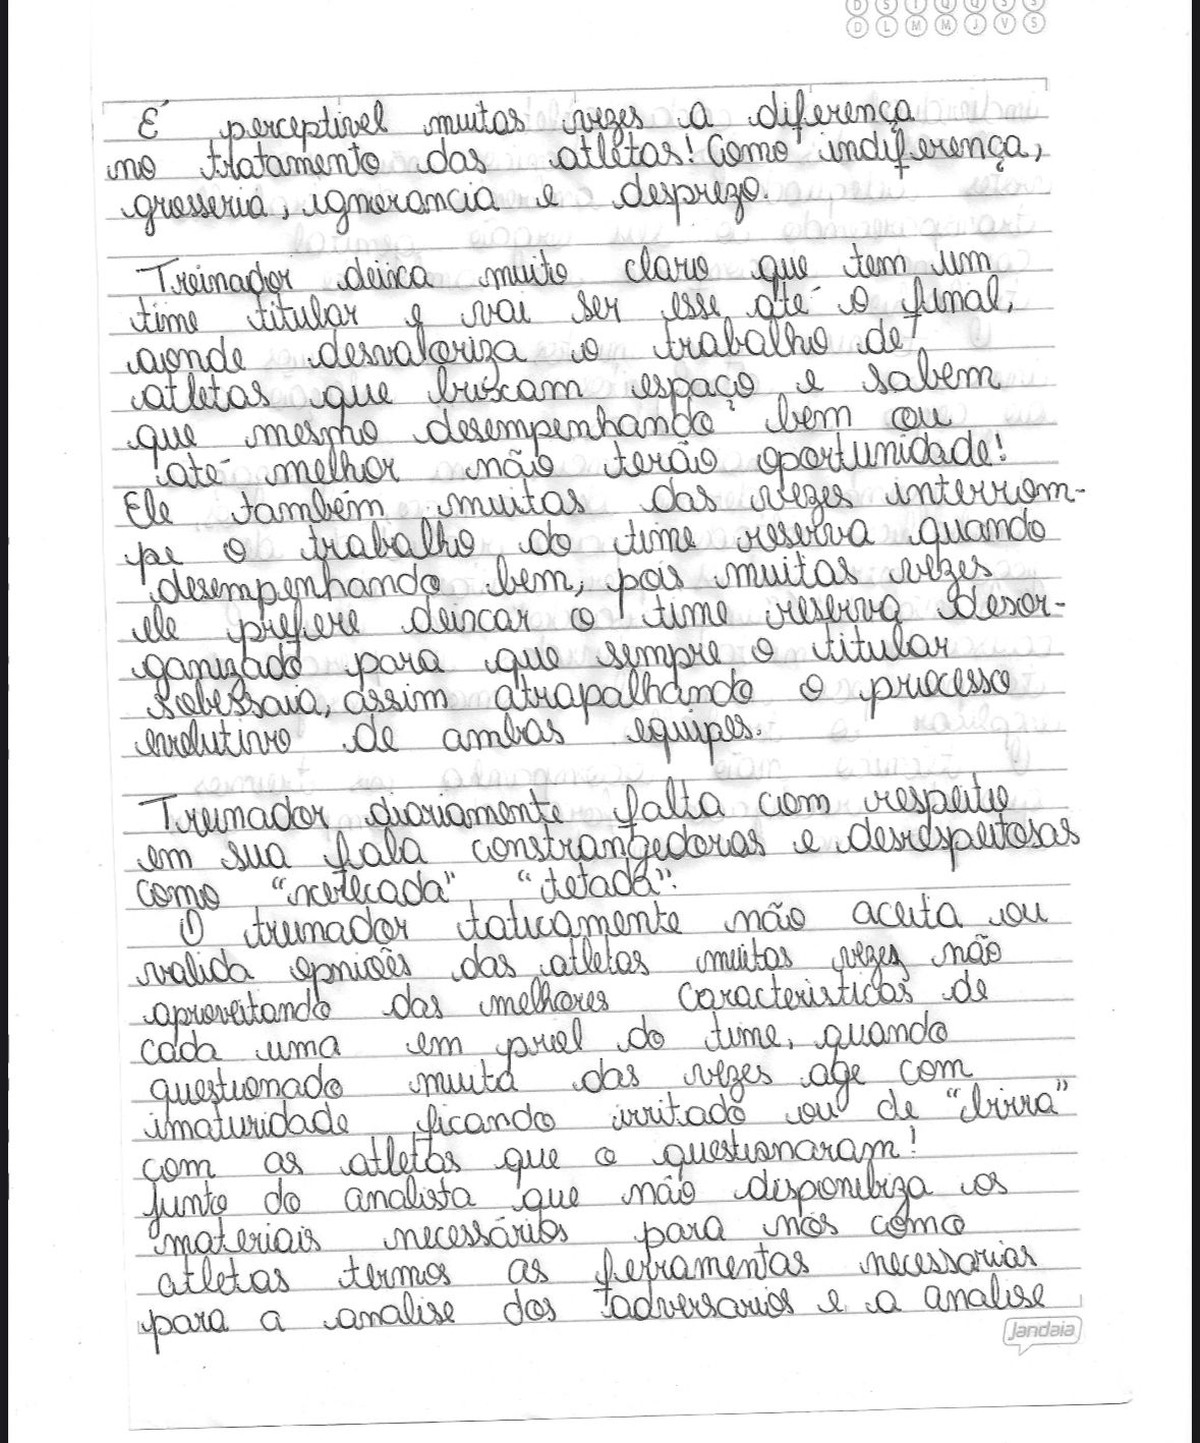 D S T Q Q S S
D L M M J V S
É perceptivel muitas vezes a diferença
no tratamento das atlétas! Como indiferença,
grosseria, ignorancia e desprezo.
Treinador deixa muito claro que tem um
time titular e vai ser esse até o final,
aonde desvaloriza o trabalho de
atletas que buscam espaço e sabem
que mesmo desempenhando bem ou
até melhor não terão oportunidade!
Ele também muitas das vezes interrom-
pe o trabalho do time reserva quando
desempenhando bem, pois muitas vezes
ele prefere deixar o time reserva desor-
ganizado para que sempre o titular
sobessaia, assim atrapalhando o processo
evolutivo de ambas equipes.
Treinador diariamente falta com respeito
em sua fala constrangedoras e desrespeitosas
como "xerecada", "tetada".
O treinador taticamente não aceita ou
valida opniões das atletas muitas vezes não
aproveitando das melhores caracteristicas de
cada uma em prol do time, quando
questionado muita das vezes age com
imaturidade ficando irritado ou de "birra"
com as atletas que o questionaram!
Junto do analista que não disponibiza os
materiais necessários para nós como
atletas termos as ferramentas necessarias
para a analise dos adversarios e a analise
Jandaia